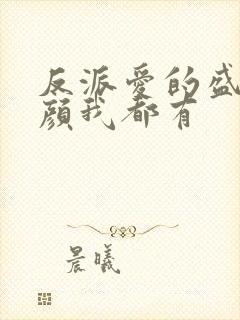 反派爱的盛
颜我都有
晨曦